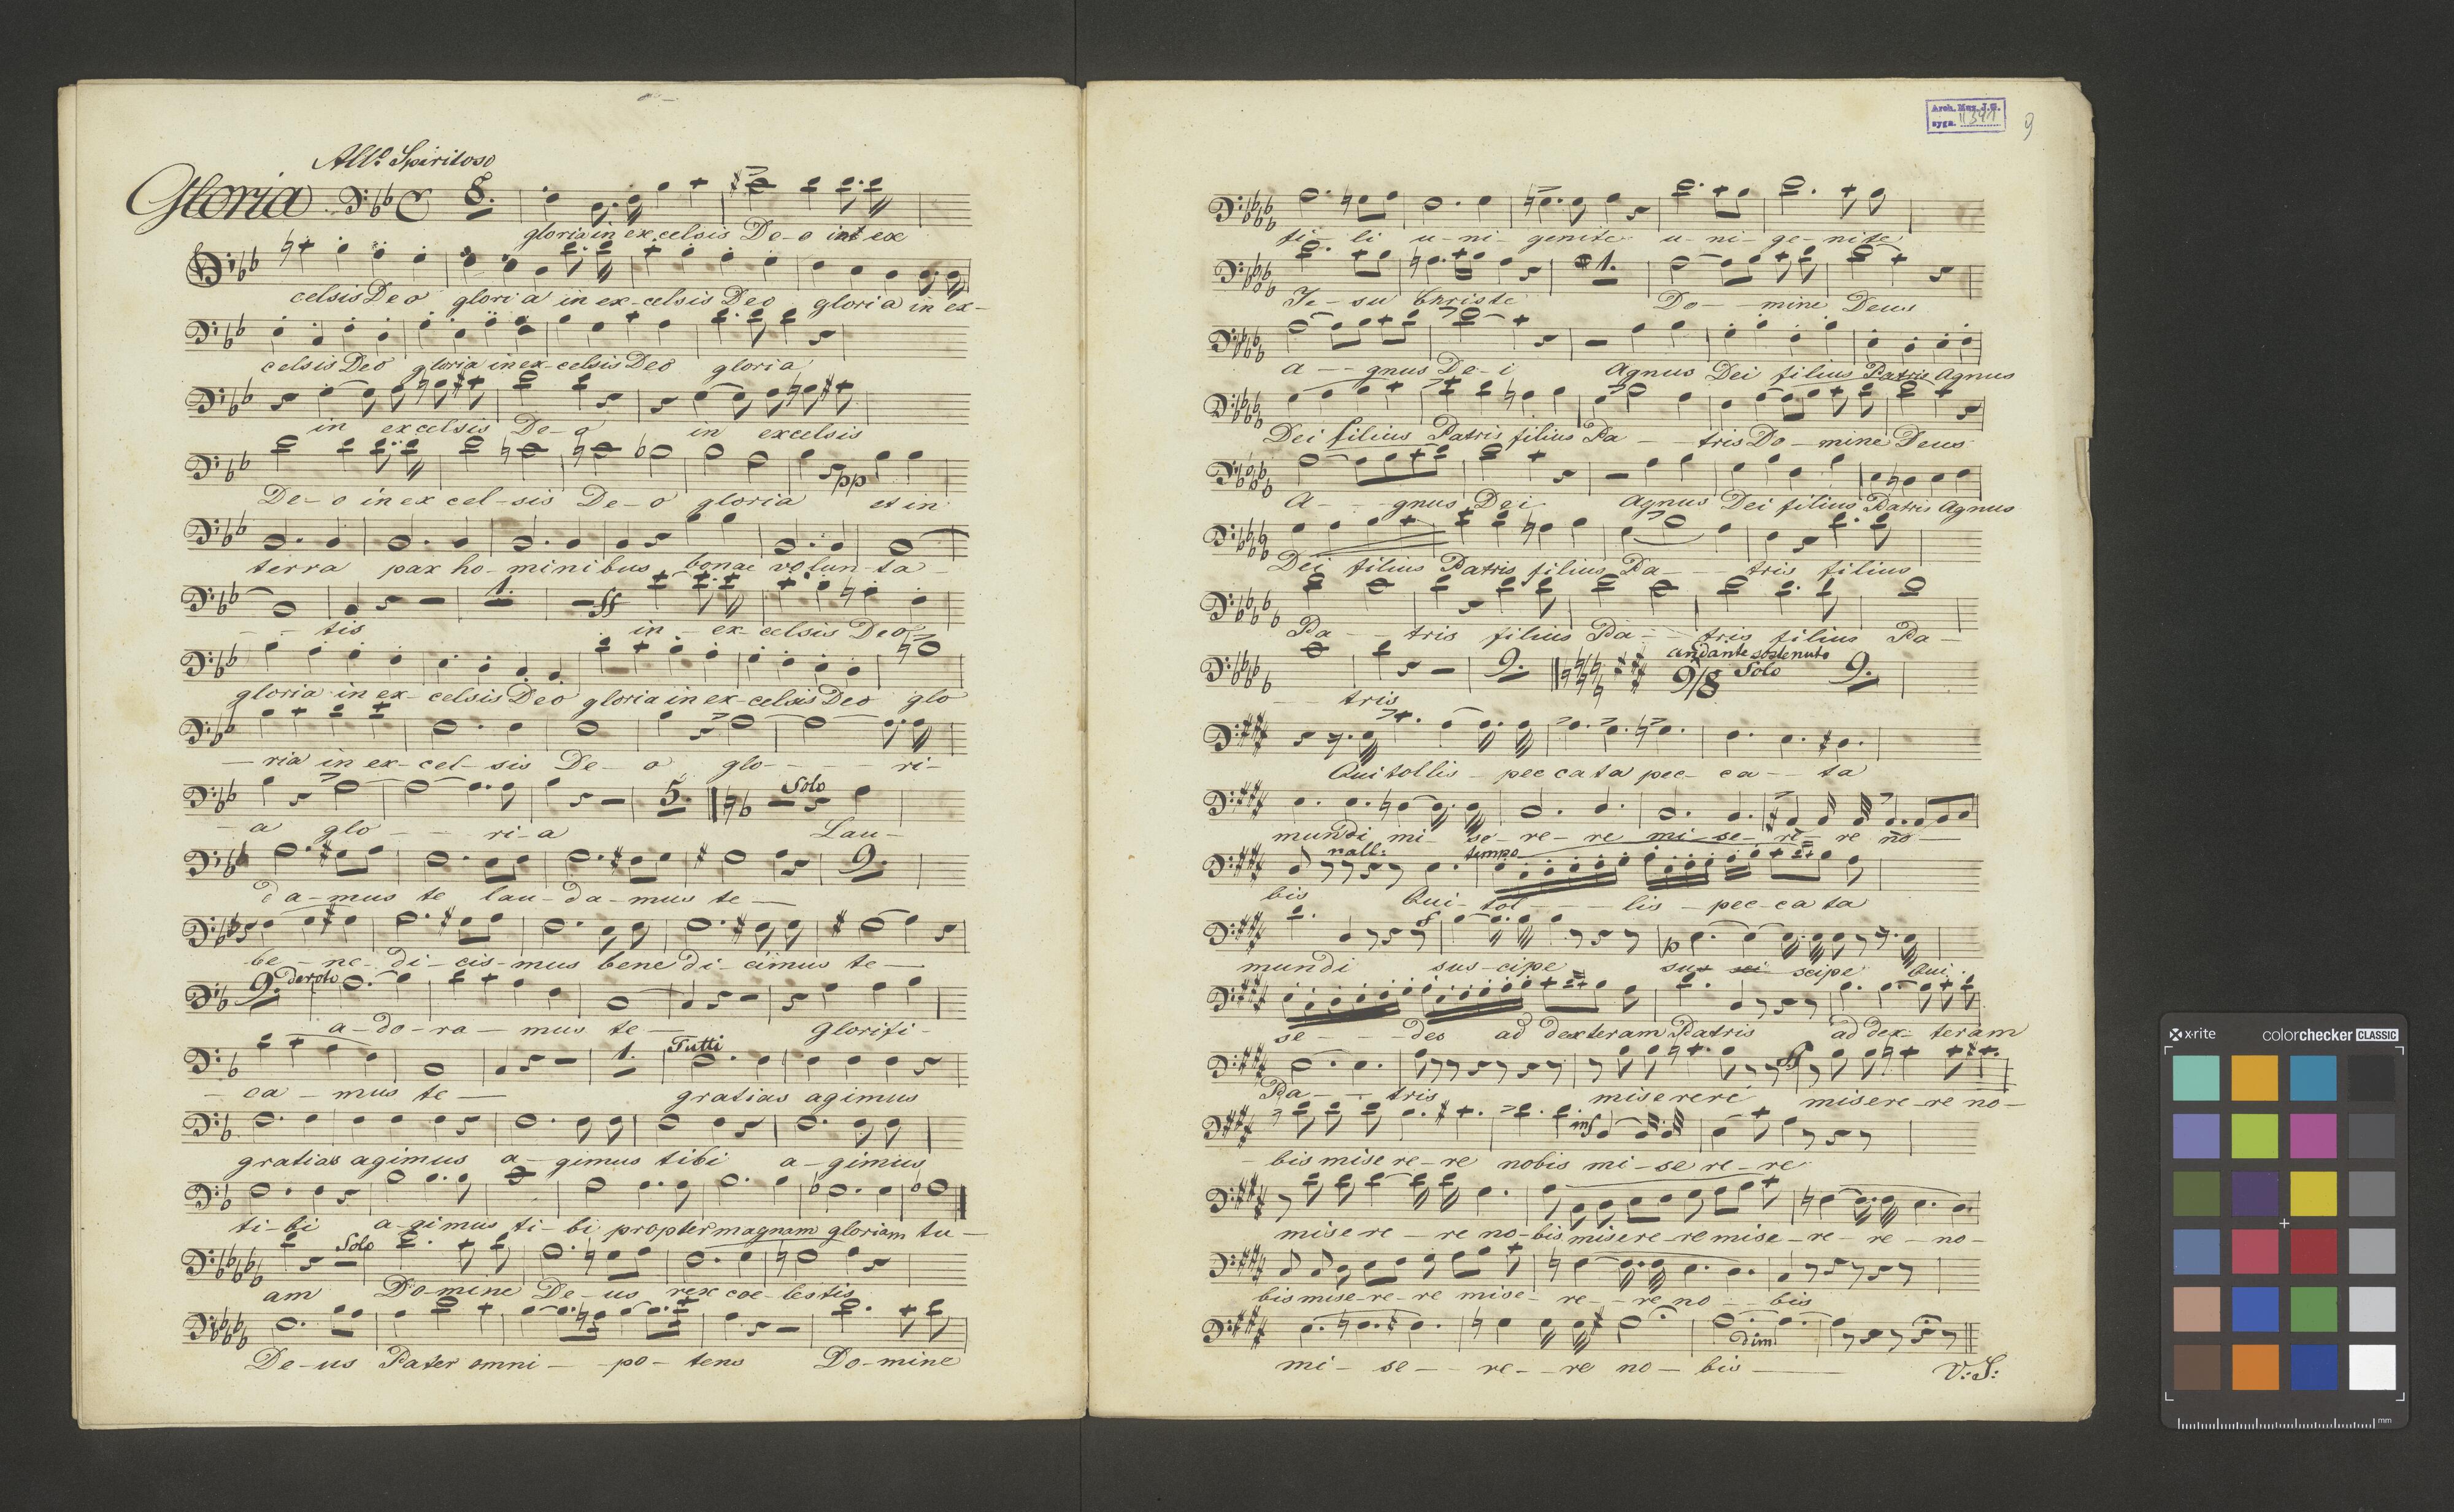 Gloria
All.º Spiritoso
8.
gloria in excelsis De-o int ex
celsis Deo gloria in ex-celsis Deo gloria in ex-
celsis Deo gloria in ex-celsis Deo gloria
in excelsis De-o in excelsis
De-o in ex cel-sis De-o gloria et in
pp
terra pax ho-minibus bonae volun-ta-
1.
ff
- - tis in - ex-celsis Deo
gloria in ex-celsis Deo gloria in ex-celsis Deo glo
- ria in ex-cel-sis De-o glo- - - - ri-
5. Solo
- a glo - - - ri-a Lau-
9.
da-mus te lau-da-mus te -
be-ne-di-cis-mus bene di-cimus te -
9. devoto
a-do-ra-mus te - Glorifi-
1. Tutti
- ca-mus te - gratias agimus
gratias agimus a-gimus tibi a-gimus
ti-bi a-gimus ti-bi propter magnam gloriam tu-
Solo
am Do-mine De-us rex coe-lestis
De-us Pater omni- -po-tens Do-mine
Arch. Muz. J.G.
sygn. II 341
9
fi-li u-ni-genite u-ni-ge-nite
1.
Je-su Christe Do- -mine Deus
a - - gnus De-i Agnus Dei filius Patris Agnus
Dei filius Patris filius Pa - - tris Do-mine Deus
A - - - gnus Dei Agnus Dei filius Patris Agnus
Dei filius Patris filius Pa- - - tris filius
Pa - - tris filius Pa- - tris filius Pa-
andante sostenuto
9. 9/8 Solo 9.
- - tris
Qui tollis - peccata pec-ca - - ta
mundi mi-se-re-re mi-se-re-re no-
rall: tempo
bis Qui-tol - - - - lis - pec-ca ta
f p
mundi sus-cipe sus sci scipe Qui
se - - - des ad dexteram Patris ad dex-teram
ff
Pa - - - tris misereri misere-re no-
mf
- bis mise re-re nobis mi-se re-re
mise re - re no-bis misere-re mise-re-re-no-
bis mise-re-re mise-re- -re no - - bis
dim
mi-se- -re- -re no-bis -
V.: S:
x-rite
colorchecker CLASSIC
mm